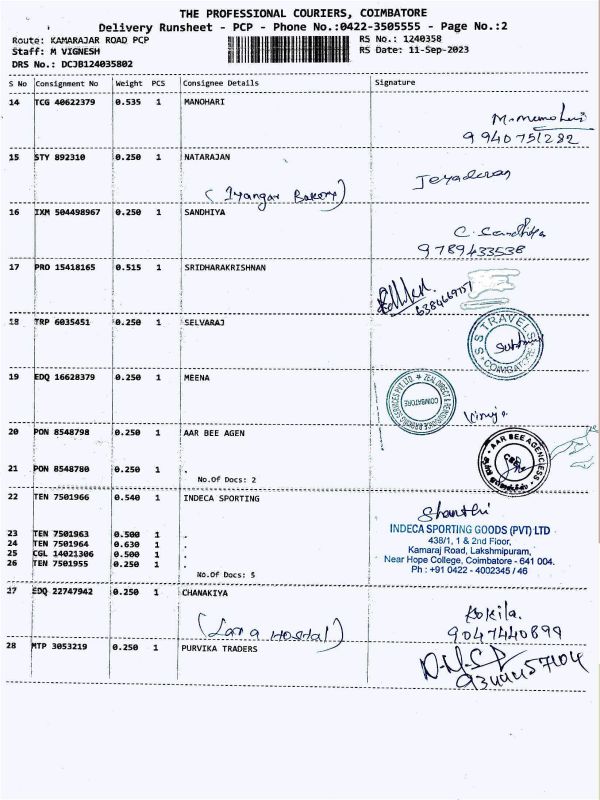 THE PROFESSIONAL COURIERS, COIMBATORE
Delivery Runsheet - PCP - Phone No.:0422-3505555 - Page No.:2
Route: KAMARAJAR ROAD PCP
RS No.: 1240358
Staff: M VIGNESH
RS Date: 11-Sep-2023
DRS No.: DCJB124035802
S No Consignment No Weight PCS Consignee Details Signature
14 TCG 40622379 0.535 1 MANOHARI
9940751282
15 STY 892310 0.250 1 NATARAJAN
(Iyangar Bakery)
16 IXM 504498967 0.250 1 SANDHIYA
C. Sandhiya
9789433538
17 PRO 15418165 0.515 1 SRIDHARAKRISHNAN
18 TRP 6035451 0.250 1 SELVARAJ
S S TRAVELS
COIMBATORE
19 EDQ 16628379 0.250 1 MEENA
COIMBATORE
20 PON 8548798 0.250 1 AAR BEE AGEN
AAR BEE AGENCIESS
21 PON 8548780 0.250 1 .
No.Of Docs: 2
22 TEN 7501966 0.540 1 INDECA SPORTING
Shanthi
INDECA SPORTING GOODS (PVT) LTD
438/1, 1 & 2nd Floor,
Kamaraj Road, Lakshmipuram,
Near Hope College, Coimbatore - 641 004.
Ph : +91 0422 - 4002345 / 46
23 TEN 7501963 0.500 1 .
24 TEN 7501964 0.630 1 .
25 CGL 14021306 0.500 1 .
26 TEN 7501955 0.250 1 .
No.Of Docs: 5
27 EDQ 22747942 0.250 1 CHANAKIYA
Kokila.
9047440899
28 MTP 3053219 0.250 1 PURVIKA TRADERS
9344457404